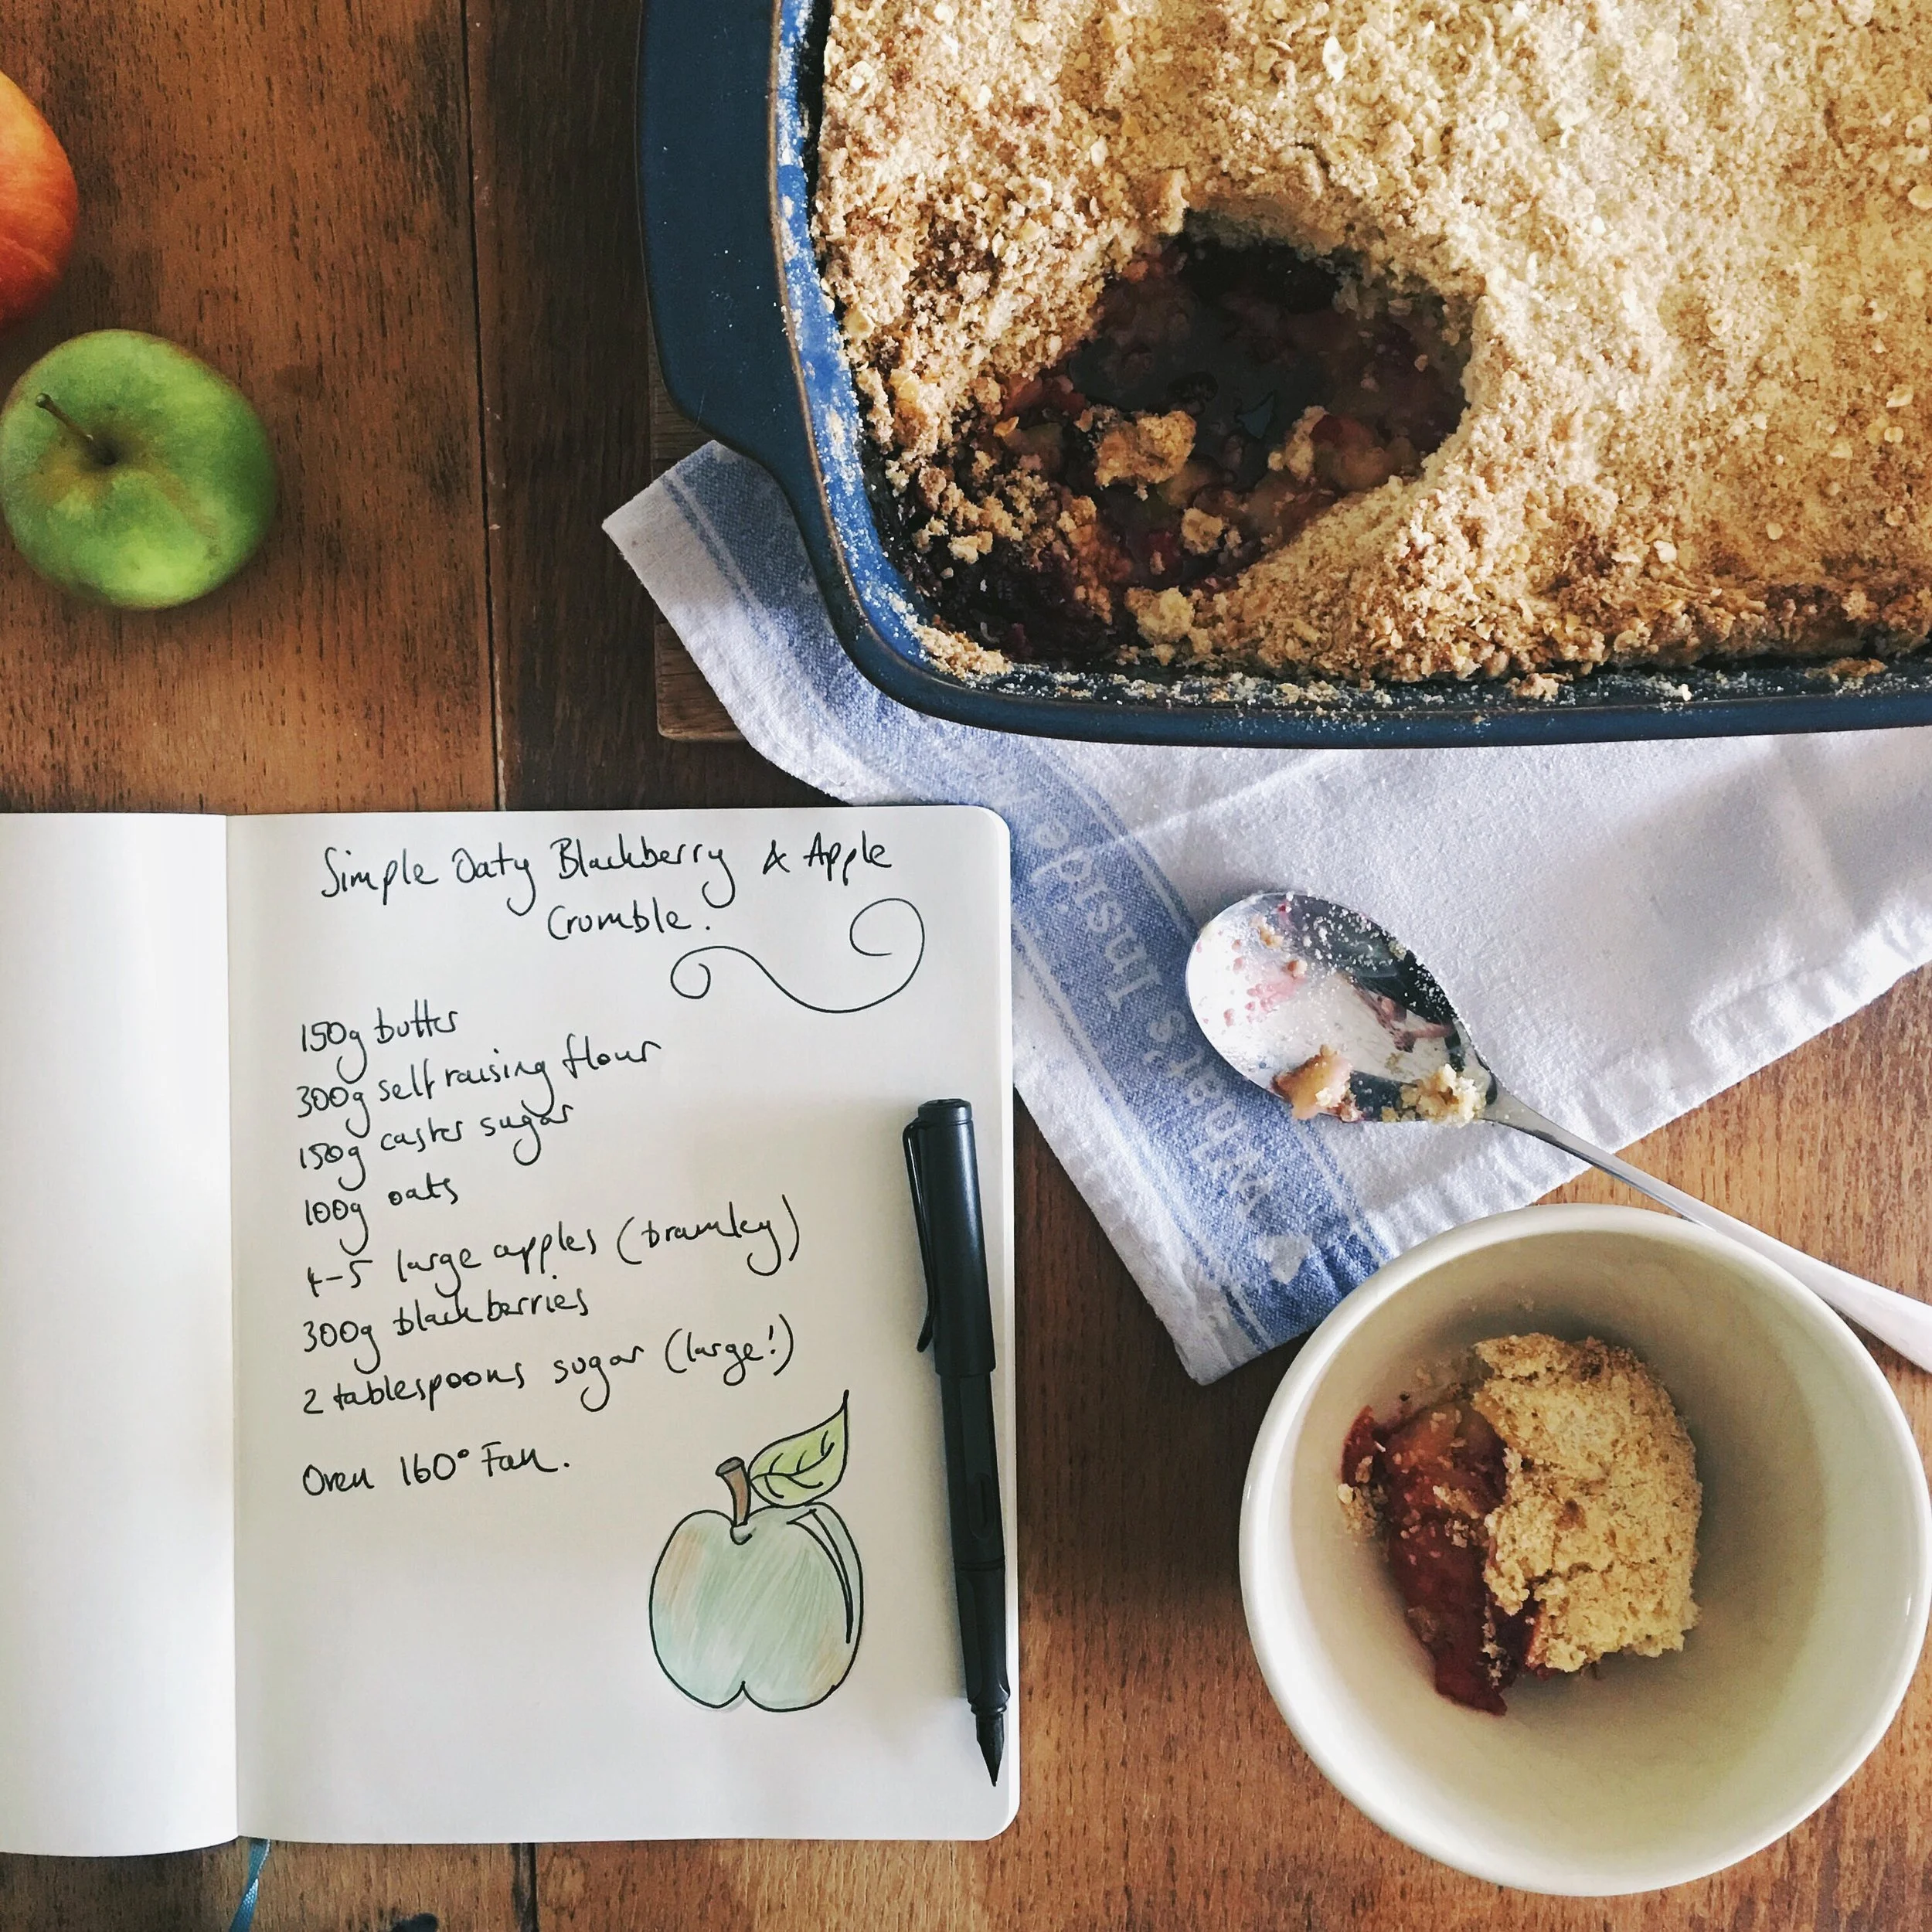 Simple Oaty Blackberry & Apple
Crumble.
150g butter
300g self raising flour
150g caster sugar
100g oats
4-5 large apples (bramley)
300g blackberries
2 tablespoons sugar (large!)
Oven 160° Fan.
What's Inside